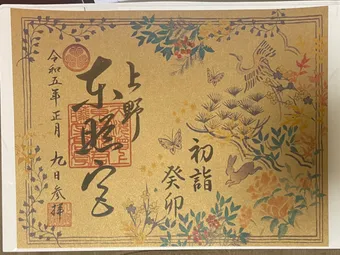 上野
東照宮
初詣
癸卯
令和五年正月
九日参拝